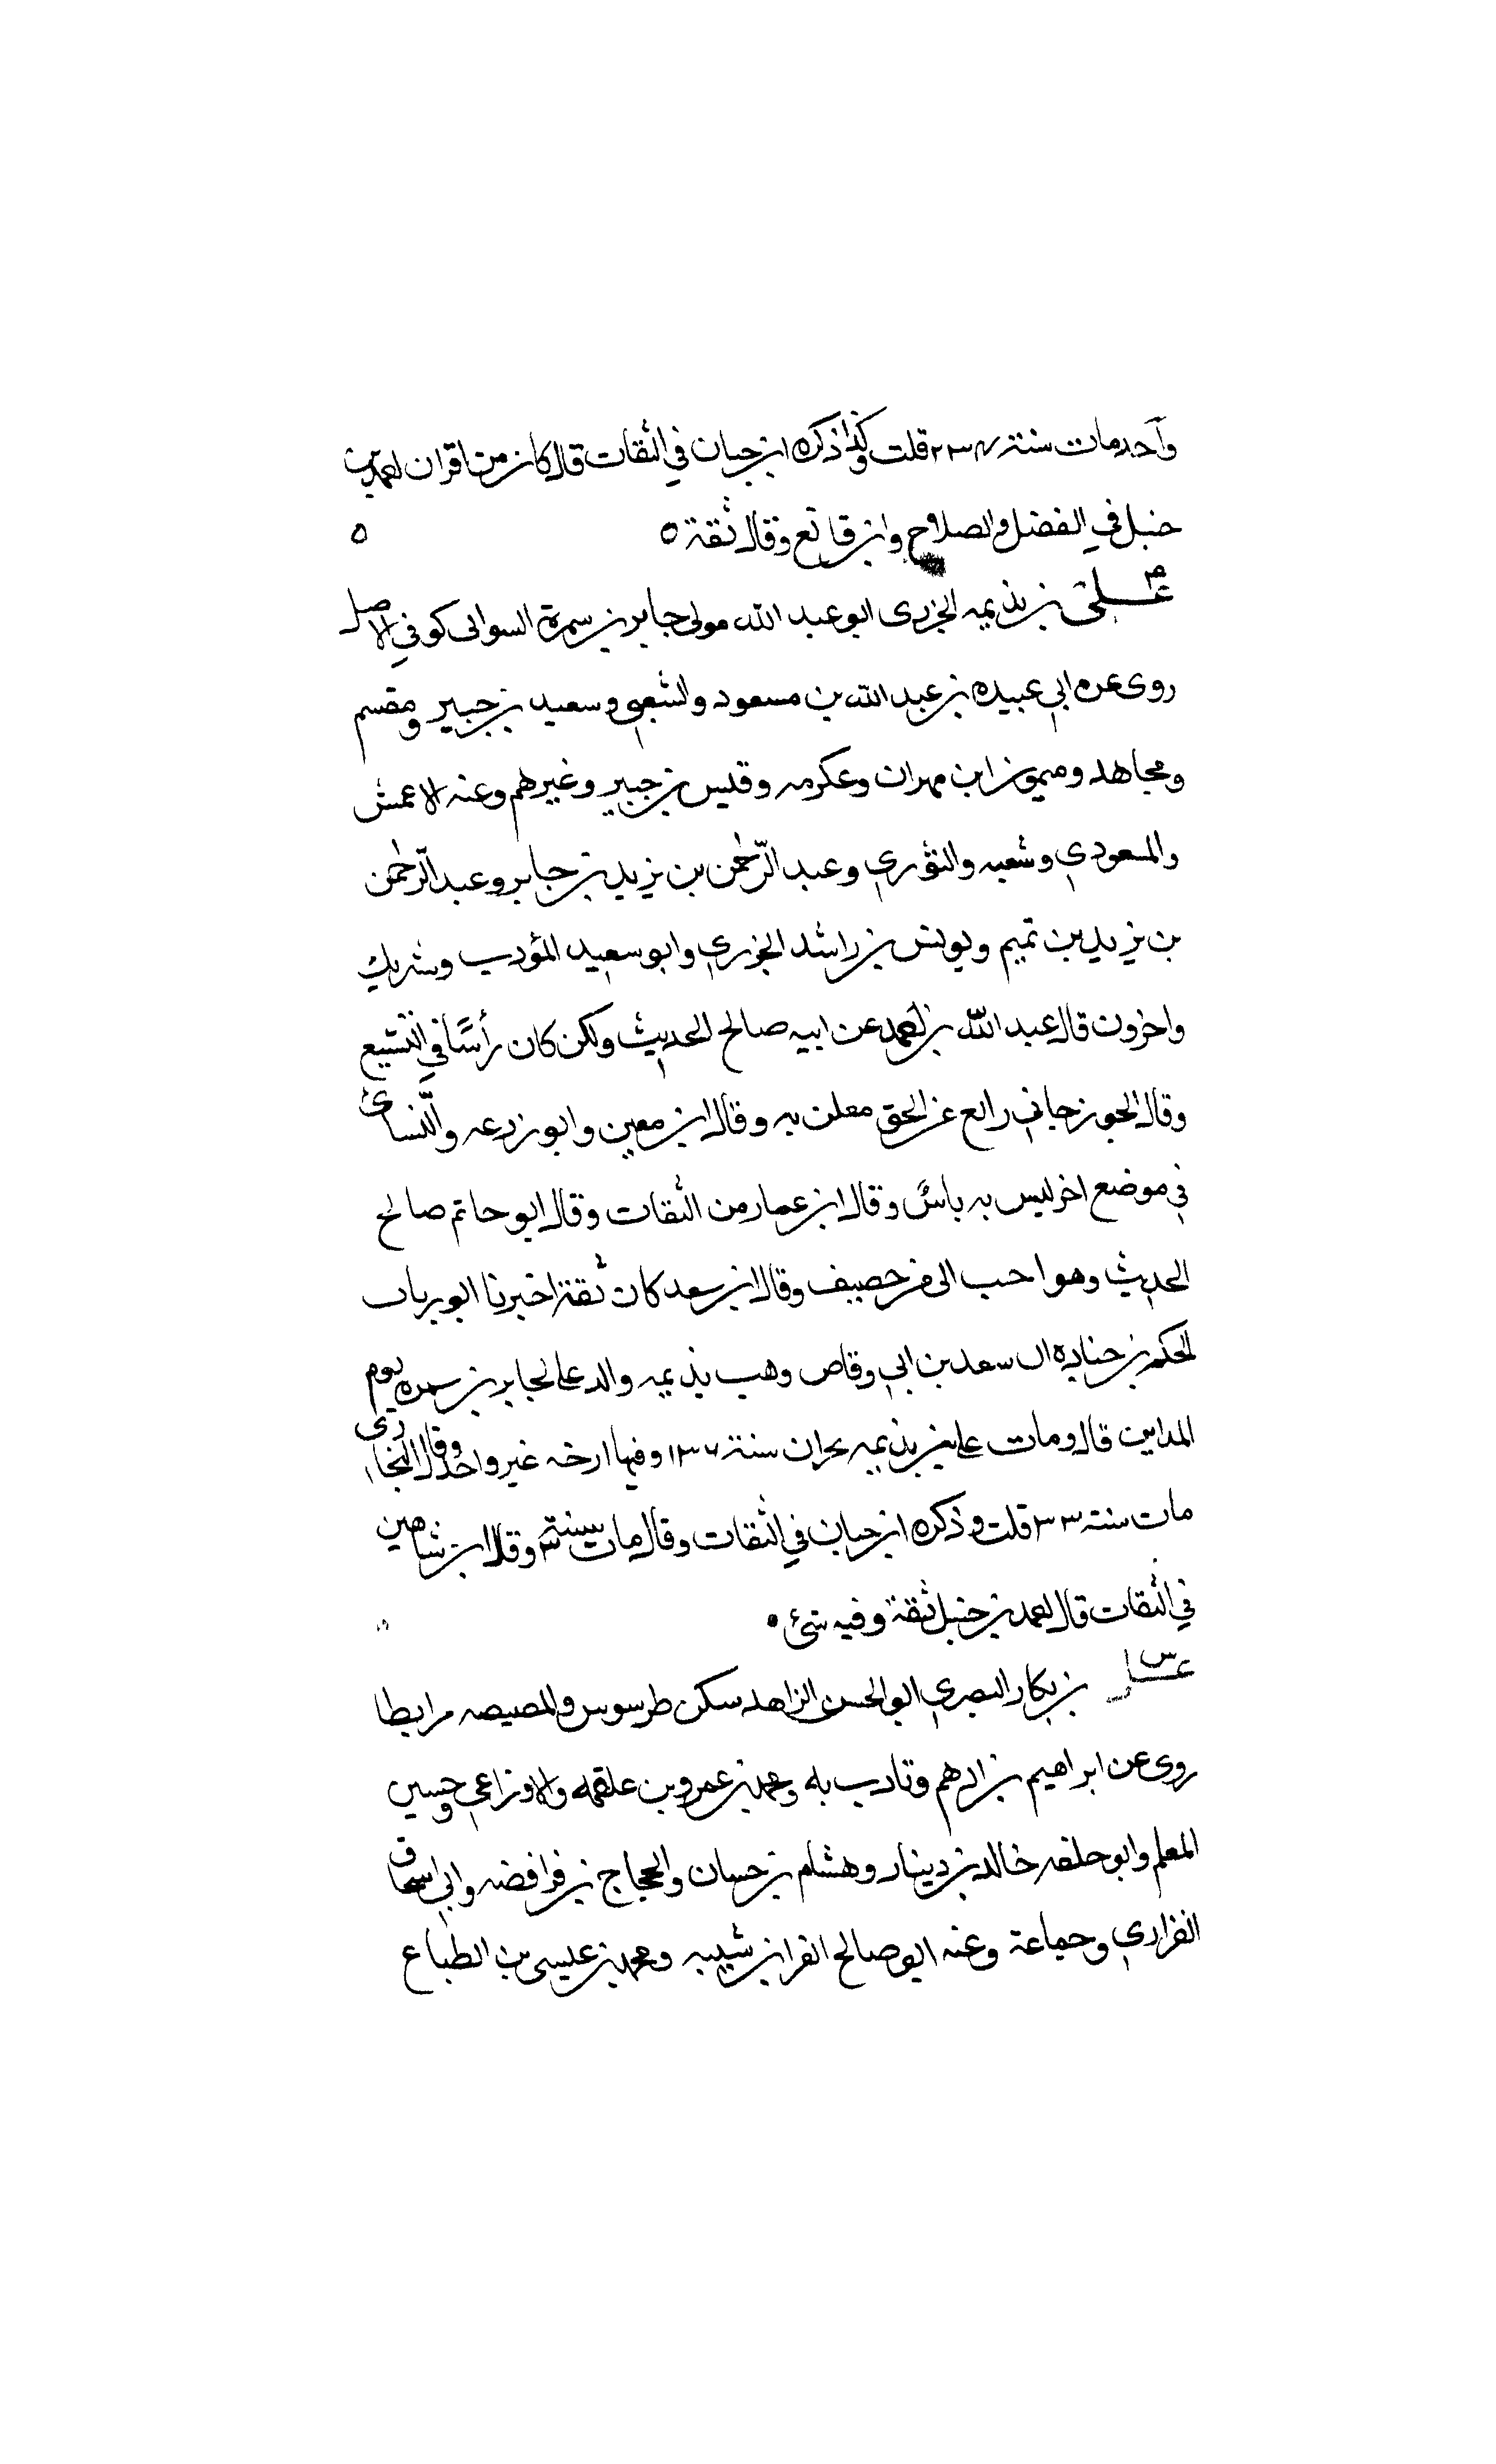 واحد مات سنة ٢٣٤ قلت وكذا ذكره ابن حبان في الثقات قال كان من اقران احمد بن
حنبل في الفضل والصلاح وابن قانع وقال ثقة ه ه
علي بن بذيمه الجزرى ابو عبد الله مولى جابر بن سمرة السوائى كوفي الاصل
روى عن ابي عبيده بن عبد الله بن مسعود والشعبي وسعيد بن جبير ومقسم
ومجاهد وميمون ابن مهران وعكرمه وقيس بن جبير وغيرهم وعنه الاعمش
والمسعودي وشعبه والثوري وعبد الرّحمن بن يزيد بن جابر وعبد الرّحمن
بن يزيد بن تميم ويونس بن راشد الجزري وابو سعيد المؤدب وشريك
واخرون قال عبد اللّه بن احمد عن ابيه صالح الحديث ولكن كان رأسًا في التشيع
وقال الجوزجاني زائع عن الحق معلن به وقال ابن معين وابو زرعه والنّسائ
في موضع اخر ليس به باسٌ وقال ابن عمار من الثقات وقال ابو حاتم صالح
الحديث وهو احب الى من خصيف وقال ابن سعد كان ثقة اخبرنا ابو رباب
الحكم بن جناده ان سعد بن ابي وقاص وهب بذيمه والد على لجابر بن سمره يوم
المداين قال ومات علي بن بذيمه بحران سنة ١٣٦ وفيها ارخه غير واحد وقال البخارى
مات سنه ٣٣ قلت وذكره ابن حبان في الثقات وقال مات سنة ٣ وقال ابن شاهين
في الثقات قال احمد بن حنبل ثقة وفيه شئ ه
بن بكار البصري ابو الحسن الزاهد سكن طرسوس والمصيصه مرابطا
روى عن ابراهيم بن ادهم وتادب به ومحمد بن عمرو بن علقمه والاوزاعي وحسين
المعلم وابو خلفه خالد بن دينار وهشام بن حسان والحجاج بن فرافضه وابي اسحاق
الفزاري وجماعة وعنه ابو صالح الفرا بن شبيبه ومحمد بن عيسى بن الطباع